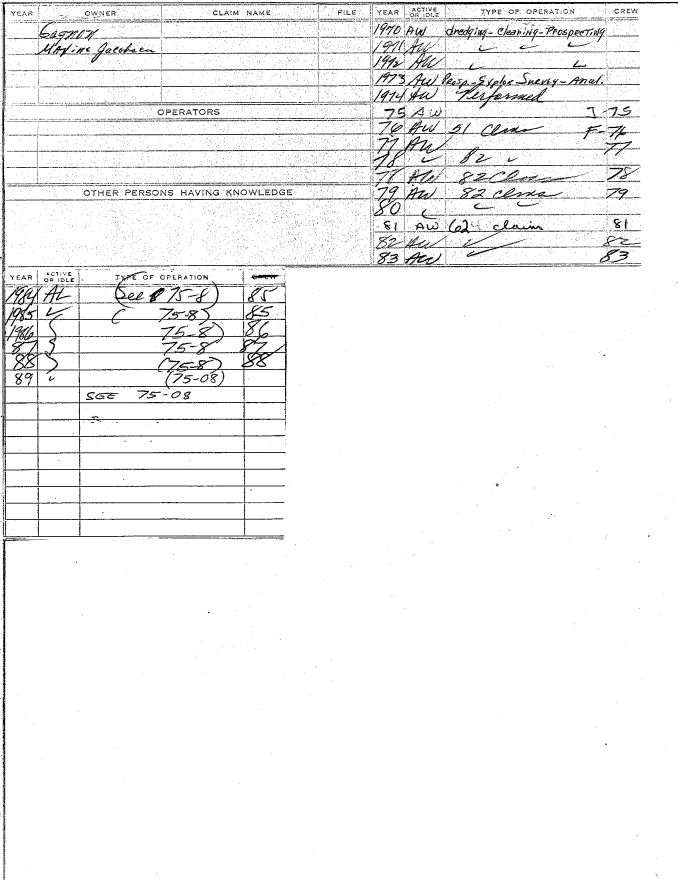 YEAR OWNER CLAIM NAME FILE
Gagnon
Maxine Jacobsen
OPERATORS
OTHER PERSONS HAVING KNOWLEDGE
YEAR ACTIVE OR IDLE TYPE OF OPERATION CREW
1970 AW dredging-Clearing-Prospecting
1971 AW ✓ ✓ ✓
1972 AW ✓ ✓
1973 AW Prosp-Explor-Survey-Anal.
1974 AW Performed
75 AW J-75
76 AW 51 Clms F-76
77 AW 77
78 ✓ 82 ✓
78 AW 82 Clms 78
79 AW 82 clms 79
80 ✓ ✓ ✓
81 AW 62 claim 81
82 AW ✓ 82
83 AW 83
YEAR ACTIVE OR IDLE TYPE OF OPERATION CREW
1984 AL (See 75-8) 85
1985 ✓ ( 75-8) 85
1986 } 75-8) 86
87 } 75-8 87
88 } (75-8) 88
89 " (75-08)
SEE 75-08